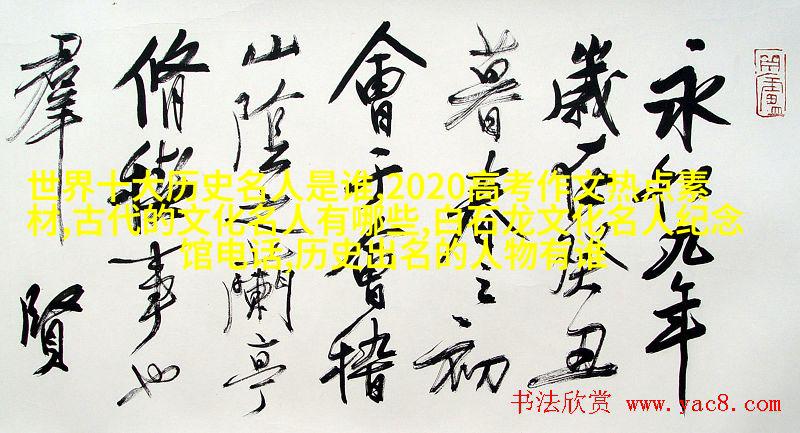 永和九年
歲在癸丑
暮春之初
會于會稽
山陰之蘭亭
脩禊事也
羣賢
世界十大历史名人是谁,2020高考作文热点素
材,古代的文化名人有哪些,白石龙文化名人纪念
馆电话,历史出名的人物有谁
书法欣赏 www.yac8.com